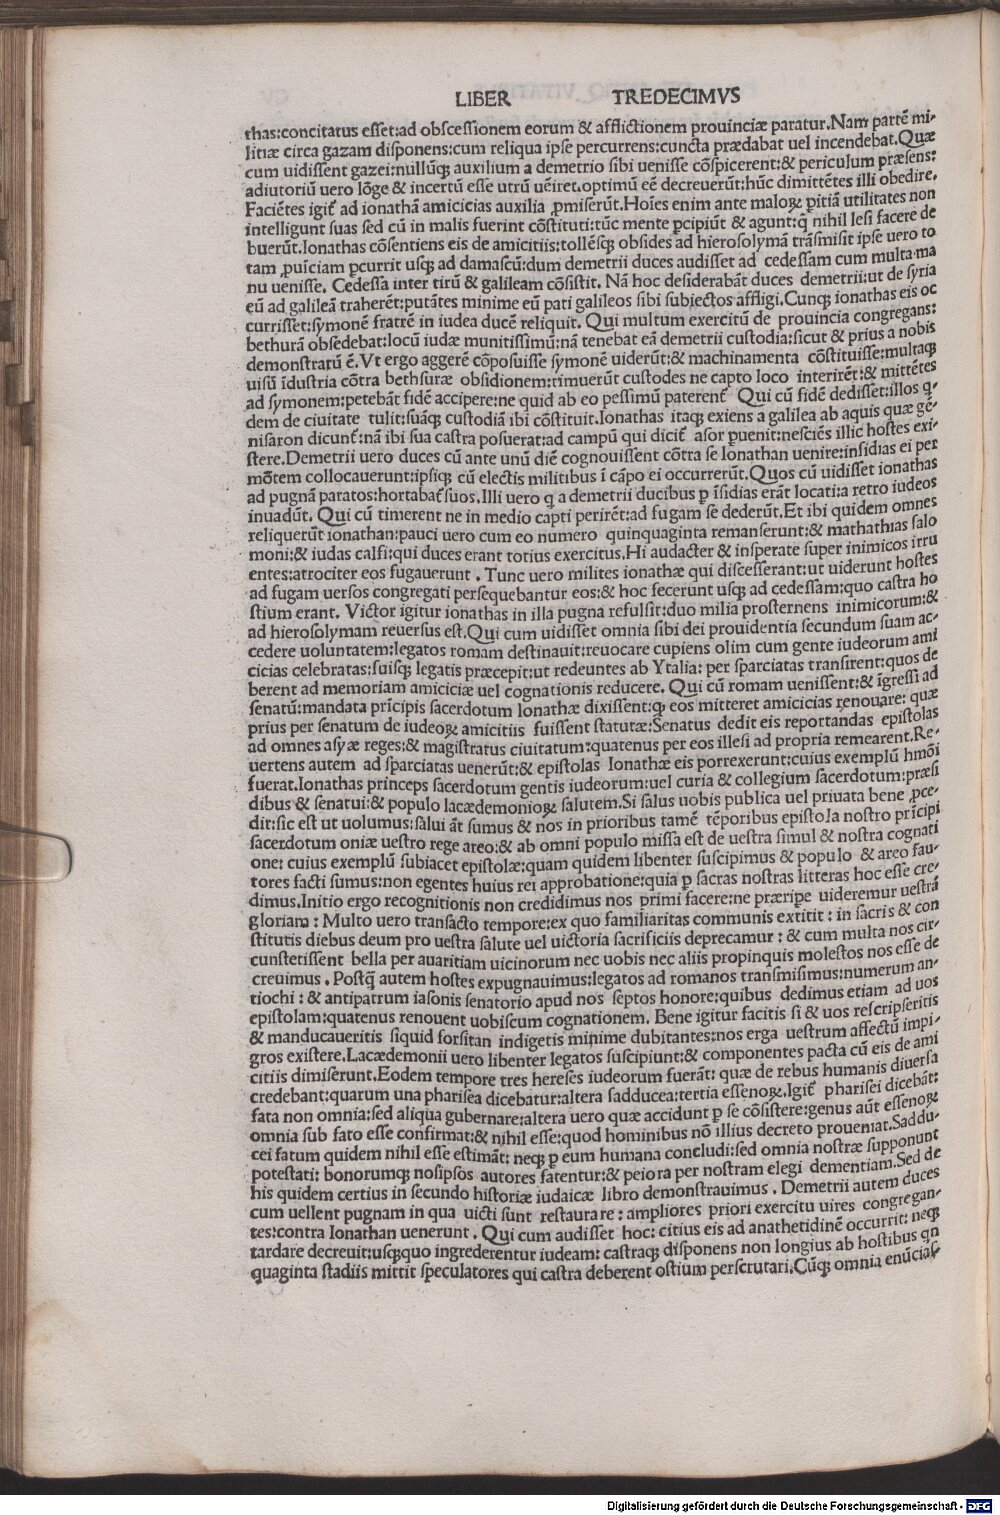 LIBER TREDECIMVS
thas:concitatus esset:ad obscessionem eorum & afflictionem prouinciæ paratur.Nam partē mi-
litiæ circa gazam disponens:cum reliqua ipse percurrens:cuncta prædabat uel incendebat.Quæ
cum uidissent gazei:nullūqȝ auxilium a demetrio sibi uenisse cōspicerent:& periculum præsens:
adiutoriū uero lōge & incertū esse utrū uēiret.optimū eē decreuerūt:hūc dimittētes illi obedire.
Faciētes igit̃ ad ionathā amicicias auxilia ꝓmiserūt.Hoīes enim ante maloꝝ ꝑitiā utilitates non
intelligunt suas sed cū in malis fuerint cōstituti:tūc mente ꝑcipiūt & agunt:q̄ nihil lesi facere de
buerūt.Ionathas cōsentiens eis de amicitiis:tollēsqȝ obsides ad hierosolymā trāsmisit ipse uero to
tam ꝓuīciam ꝑcurrit usqȝ ad damascū:dum demetrii duces audisset ad cedessam cum multa ma
nu uenisse. Cedessa inter tirū & galileam cōsistit. Nā hoc desiderabāt duces demetrii:ut de syria
eū ad galileā traherēt:putātes minime eū pati galileos sibi subiectos affligi.Cunqȝ ionathas eis oc
currisset:symonē fratrē in iudea ducē reliquit. Qui multum exercitū de prouincia congregans:
bethurā obsedebat:locū iudæ munitissimū:nā tenebat eā demetrii custodia:sicut & prius a nobis
demonstratū ē.Vt ergo aggerē cōposuisse symonē uiderūt:& machinamenta cōstituisse:multaqȝ
uisū īdustria cōtra bethsuræ obsidionem:timuerūt custodes ne capto loco interirēt:& mittētes
ad symonem:petebāt fidē accipere:ne quid ab eo pessimū paterent̃ Qui cū fidē dedisset:illos q-
dem de ciuitate tulit:suāqȝ custodiā ibi cōstituit.Ionathas itaqȝ exiens a galilea ab aquis quæ gē-
nisaron dicunt̃:nā ibi sua castra posuerat:ad campū qui dicit̃ asor ꝑuenit:nesciēs illic hostes exi-
stere.Demetrii uero duces cū ante unū diē cognouissent cōtra se Ionathan uenire:insidias ei per
mōtem collocauerunt:ipsiqȝ cū electis militibus ī cāpo ei occurrerūt.Quos cū uidisset ionathas
ad pugnā paratos:hortabat̃ suos.Illi uero q a demetrii ducibus ꝑ īsidias erāt locati:a retro iudeos
inuadūt. Qui cū timerent ne in medio capti perirēt:ad fugam se dederūt.Et ibi quidem omnes
reliquerūt ionathan:pauci uero cum eo numero quinquaginta remanserunt:& mathathias salo
moni:& iudas calfi:qui duces erant totius exercitus.Hi audacter & insperate super inimicos irru
entes:atrociter eos fugauerunt . Tunc uero milites ionathæ qui discesserant:ut uiderunt hostes
ad fugam uersos congregati persequebantur eos:& hoc fecerunt usqȝ ad cedessam:quo castra ho
stium erant. Victor igitur ionathas in illa pugna refulsit:duo milia prosternens inimicorum:&
ad hierosolymam reuersus est.Qui cum uidisset omnia sibi dei prouidentia secundum suam ac-
cedere uoluntatem:legatos romam destinauit:reuocare cupiens olim cum gente iudeorum ami
cicias celebratas:suisqȝ legatis præcepit:ut redeuntes ab Ytalia: per sparciatas transirent:quos de
berent ad memoriam amiciciæ uel cognationis reducere. Qui cū romam uenissent:& īgressi ad
senatū:mandata prīcipis sacerdotum Ionathæ dixissent:qȝ eos mitteret amicicias renouare: quæ
prius per senatum de iudeoꝝ amicitiis fuissent statutæ:Senatus dedit eis reportandas epistolas
ad omnes asyæ reges:& magistratus ciuitatum:quatenus per eos illesi ad propria remearent.Re-
uertens autem ad sparciatas uenerūt:& epistolas Ionathæ eis porrexerunt:cuius exemplū hmōi
fuerat.Ionathas princeps sacerdotum gentis iudeorum:uel curia & collegium sacerdotum:præsi
dibus & senatui:& populo lacædemonioꝝ salutem.Si salus uobis publica uel priuata bene ꝓce-
dit:sic est ut uolumus:salui āt sumus & nos in prioribus tamē tēporibus epistola nostro prīcipi
sacerdotum oniæ uestro rege areo:& ab omni populo missa est de uestra simul & nostra cognati
one: cuius exemplū subiacet epistolæ:quam quidem libenter suscipimus & populo & areo fau-
tores facti sumus:non egentes huius rei approbatione:quia ꝑ sacras nostras litteras hoc esse cre-
dimus.Initio ergo recognitionis non credidimus nos primi facere:ne præripe uideremur uestrā
gloriam : Multo uero transacto tempore:ex quo familiaritas communis extitit : in sacris & con
stitutis diebus deum pro uestra salute uel uictoria sacrificiis deprecamur : & cum multa nos cir-
cunstetissent bella per auaritiam uicinorum nec uobis nec aliis propinquis molestos nos esse de
creuimus . Postq̄ autem hostes expugnauimus:legatos ad romanos transmisimus:numerum an-
tiochi : & antipatrum iasonis senatorio apud nos septos honore:quibus dedimus etiam ad uos
epistolam:quatenus renouent uobiscum cognationem. Bene igitur facitis si & uos rescripseritis
& manducaueritis siquid forsitan indigetis minime dubitantes:nos erga uestrum affectū impi-
gros existere.Lacædemonii uero libenter legatos suscipiunt:& componentes pacta cū eis de ami
citiis dimiserunt.Eodem tempore tres hereses iudeorum fuerāt: quæ de rebus humanis diuersa
credebant:quarum una pharisea dicebatur:altera sadducea:tertia essenoꝝ.Igit̃ pharisei dicebāt:
fata non omnia:sed aliqua gubernare:altera uero quæ accidunt ꝑ se cōsistere:genus aūt essenoꝝ
omnia sub fato esse confirmat:& nihil esse:quod hominibus nō illius decreto proueniat.Saddu-
cei fatum quidem nihil esse estimāt: neqȝ ꝑ eum humana concludi:sed omnia nostræ supponunt
potestati: bonorumqȝ nosipsos autores fatentur:& peiora per nostram elegi dementiam.Sed de
his quidem certius in secundo historiæ iudaicæ libro demonstrauimus . Demetrii autem duces
cum uellent pugnam in qua uicti sunt restaurare : ampliores priori exercitu uires congregan-
tes:contra Ionathan uenerunt . Qui cum audisset hoc: citius eis ad anathetidinē occurrit: neqȝ
tardare decreuit:usqȝquo ingrederentur iudeam: castraqȝ disponens non longius ab hostibus qn
quaginta stadiis mittit speculatores qui castra deberent ostium perscrutari.Cūqȝ omnia enūcias-
Digitalisierung gefördert durch die Deutsche Forschungsgemeinschaft - DFG